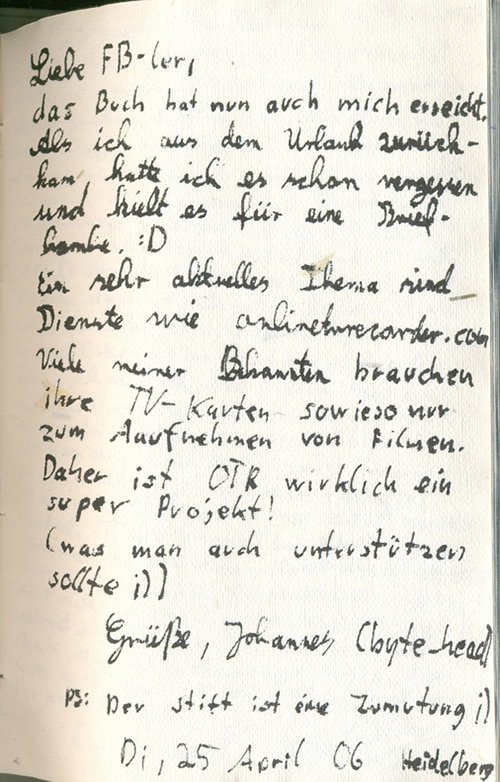 Liebe FB-ler,
das Buch hat nun auch mich erreicht.
Als ich aus dem Urlaub zurück-
kam hatte ich es schon vergessen
und hielt es für eine Brief-
bombe. :D
Ein sehr aktuelles Thema sind
Dienste wie onlinetvrecorder.com
Viele meiner Bekannten brauchen
ihre TV-Karten sowieso nur
zum Aufnehmen von Filmen.
Daher ist OTR wirklich ein
super Projekt!
(was man auch unterstützen
sollte ;))
Grüße, Johannes (byte_head)
PS: Der Stift ist eine Zumutung ;)
Di, 25 April 06 Heidelberg